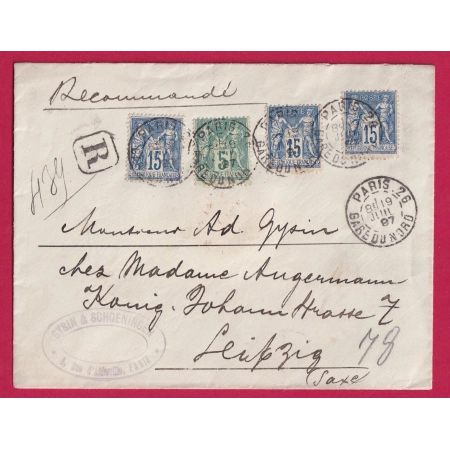 Recommandé
R
439
15
5
15
15
PARIS 26
8E 19
JUIL
97
GARE DU NORD
Monsieur Ad. Gysin
chez Madame Angermann
König-Johann Strasse 7
Leipzig
78
Saxe
GYSIN & SCHOENINGER
PARIS